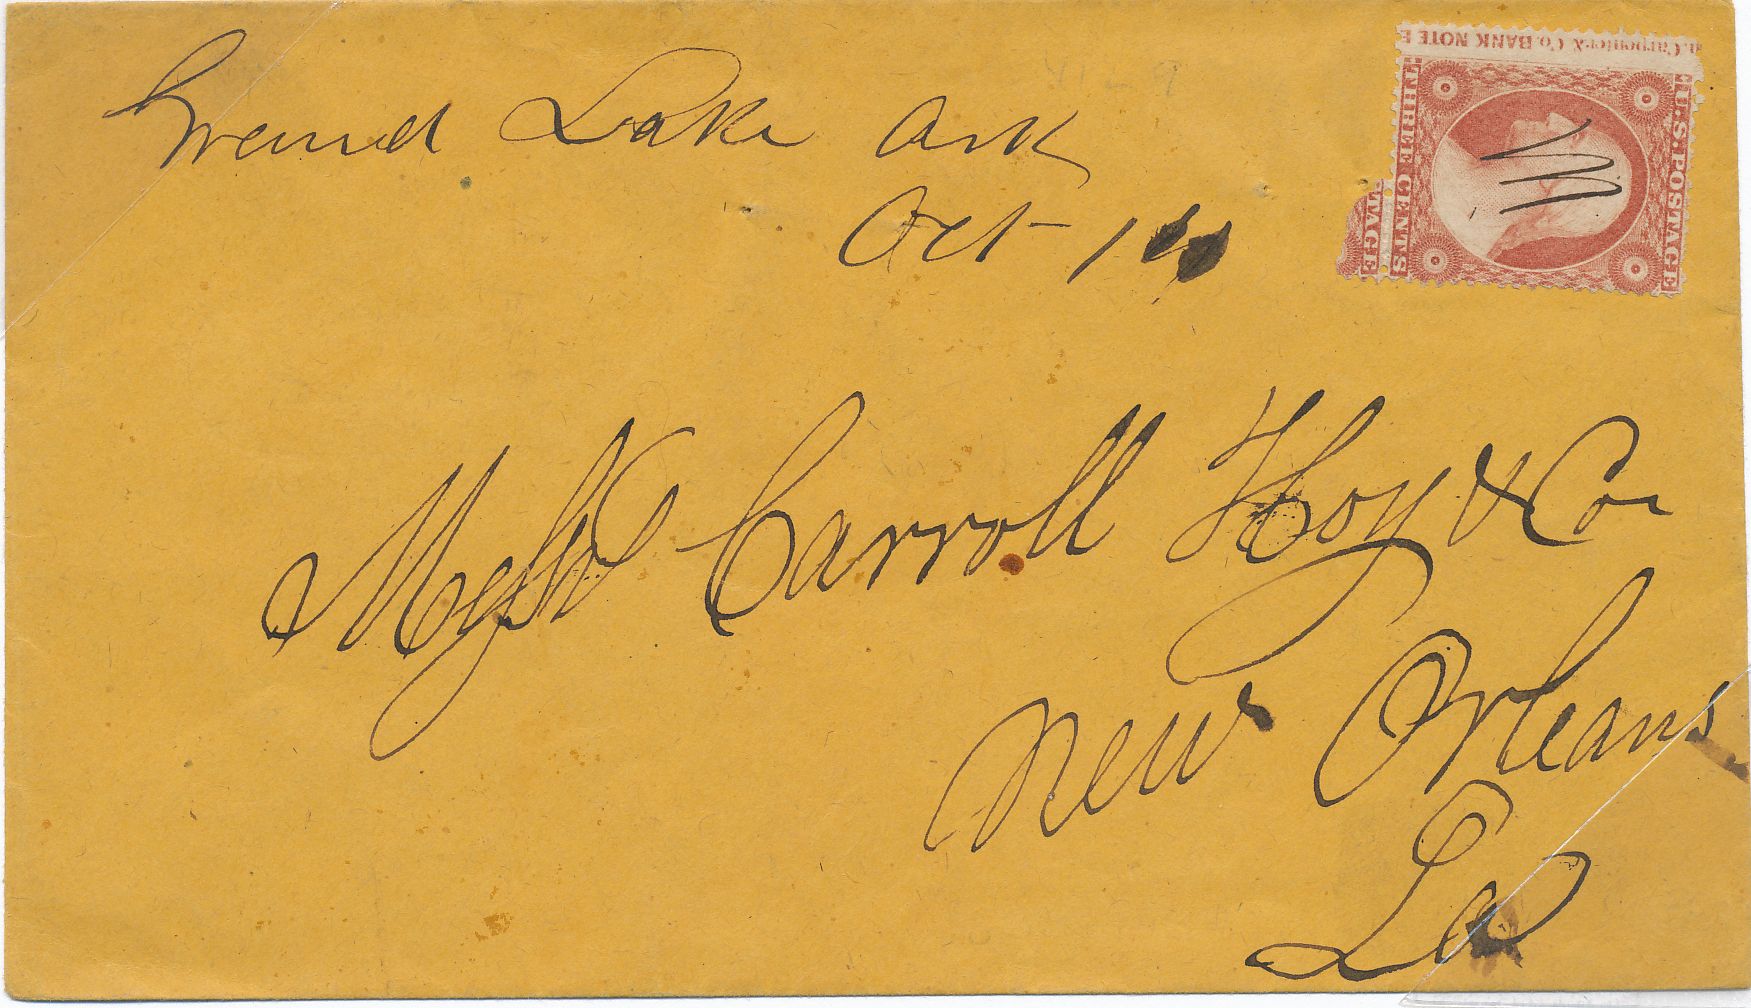 Grand Lake Ark
Oct 14
Messrs Carroll Hoy & Co
New Orleans
La
n. Carpenter & Co. BANK NOTE E
U.S. POSTAGE
THREE CENTS
TAGE